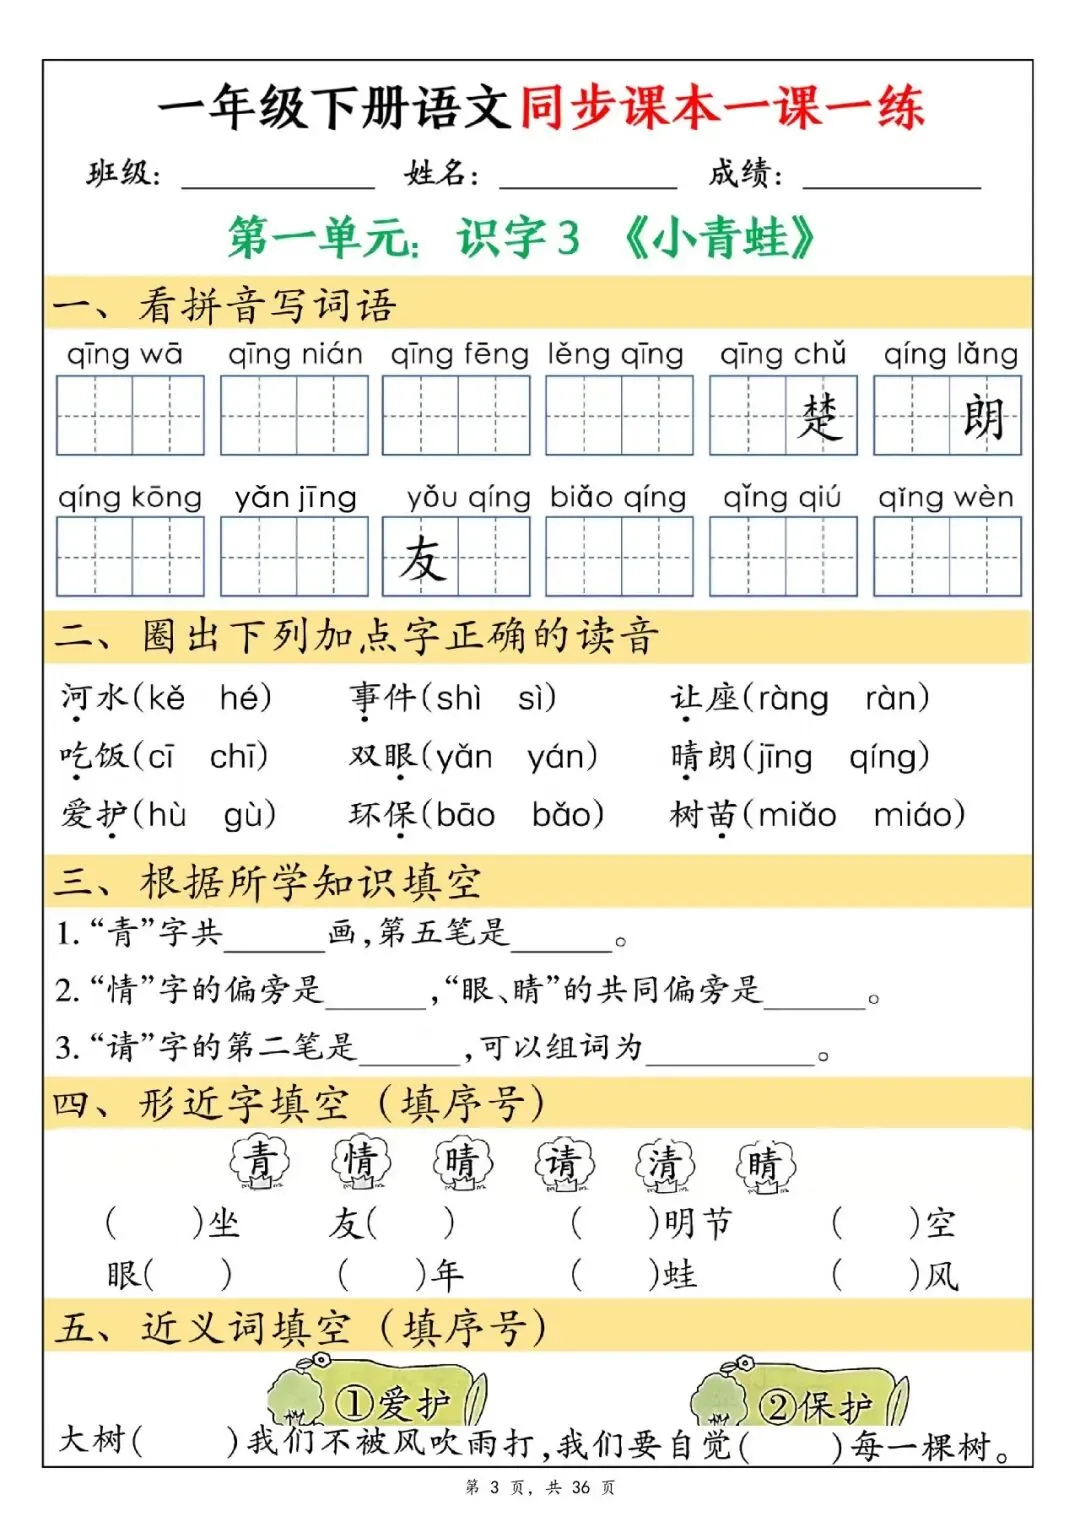 一年级下册语文同步课本一课一练
班级: ____________ 姓名: ____________ 成绩: ____________
第一单元: 识字3 《小青蛙》
一、看拼音写词语
qīng wā qīng nián qīng fēng lěng qīng qīng chǔ qíng lǎng
楚 朗
qíng kōng yǎn jīng yǒu qíng biǎo qíng qǐng qiú qǐng wèn
友
二、圈出下列加点字正确的读音
河水(kě hé) 事件(shì sì) 让座(ràng ràn)
吃饭(cī chī) 双眼(yǎn yán) 晴朗(jīng qíng)
爱护(hù gù) 环保(bāo bǎo) 树苗(miǎo miáo)
三、根据所学知识填空
1. “青”字共______画,第五笔是______。
2. “情”字的偏旁是______,“眼、睛”的共同偏旁是______。
3. “请”字的第二笔是______,可以组词为__________。
四、形近字填空(填序号)
青 情 晴 请 清 睛
( )坐 友( ) ( )明节 ( )空
眼( ) ( )年 ( )蛙 ( )风
五、近义词填空(填序号)
①爱护 ②保护
大树( )我们不被风吹雨打,我们要自觉( )每一棵树。
第 3 页, 共 36 页